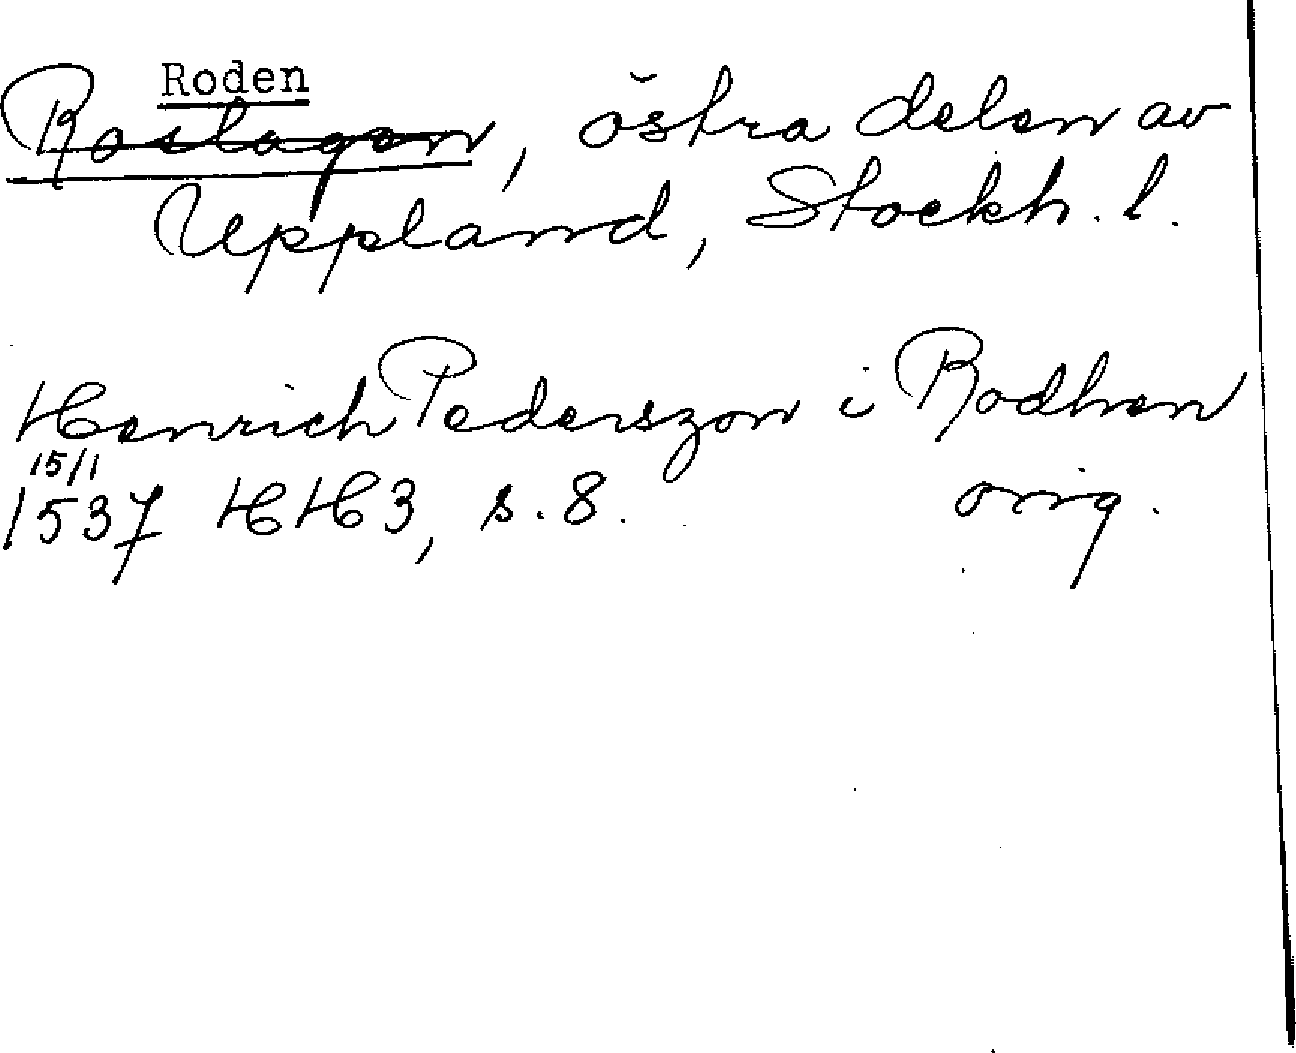 Roden
Roslagen, östra delen av
Uppland, Stockh. l.
Henrich Pederszon i Rodhen
15/1
1537 HH3, s. 8. orig.